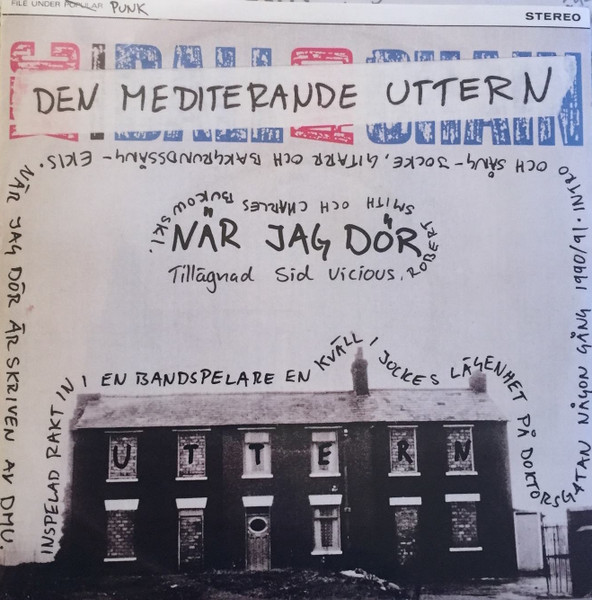 FILE UNDER POPULAR PUNK
STEREO
DEN MEDITERANDE UTTERN
INTRO
OCH SÅNG - JOCKE, GITARR OCH BAKGRUNDSSÅNG - EKIS.
NÄR JAG DÖR ÄR SKRIVEN AV DMU.
NÄR JAG DÖR
Tillägnad Sid Vicious,
ROBERT SMITH OCH CHARLES BUKOWSKI.
INSPELAD RAKT IN I EN BANDSPELARE EN KVÄLL I JOCKES LÄGENHET PÅ DOKTORSGATAN NÅGON GÅNG 1990/91.
UTTERN